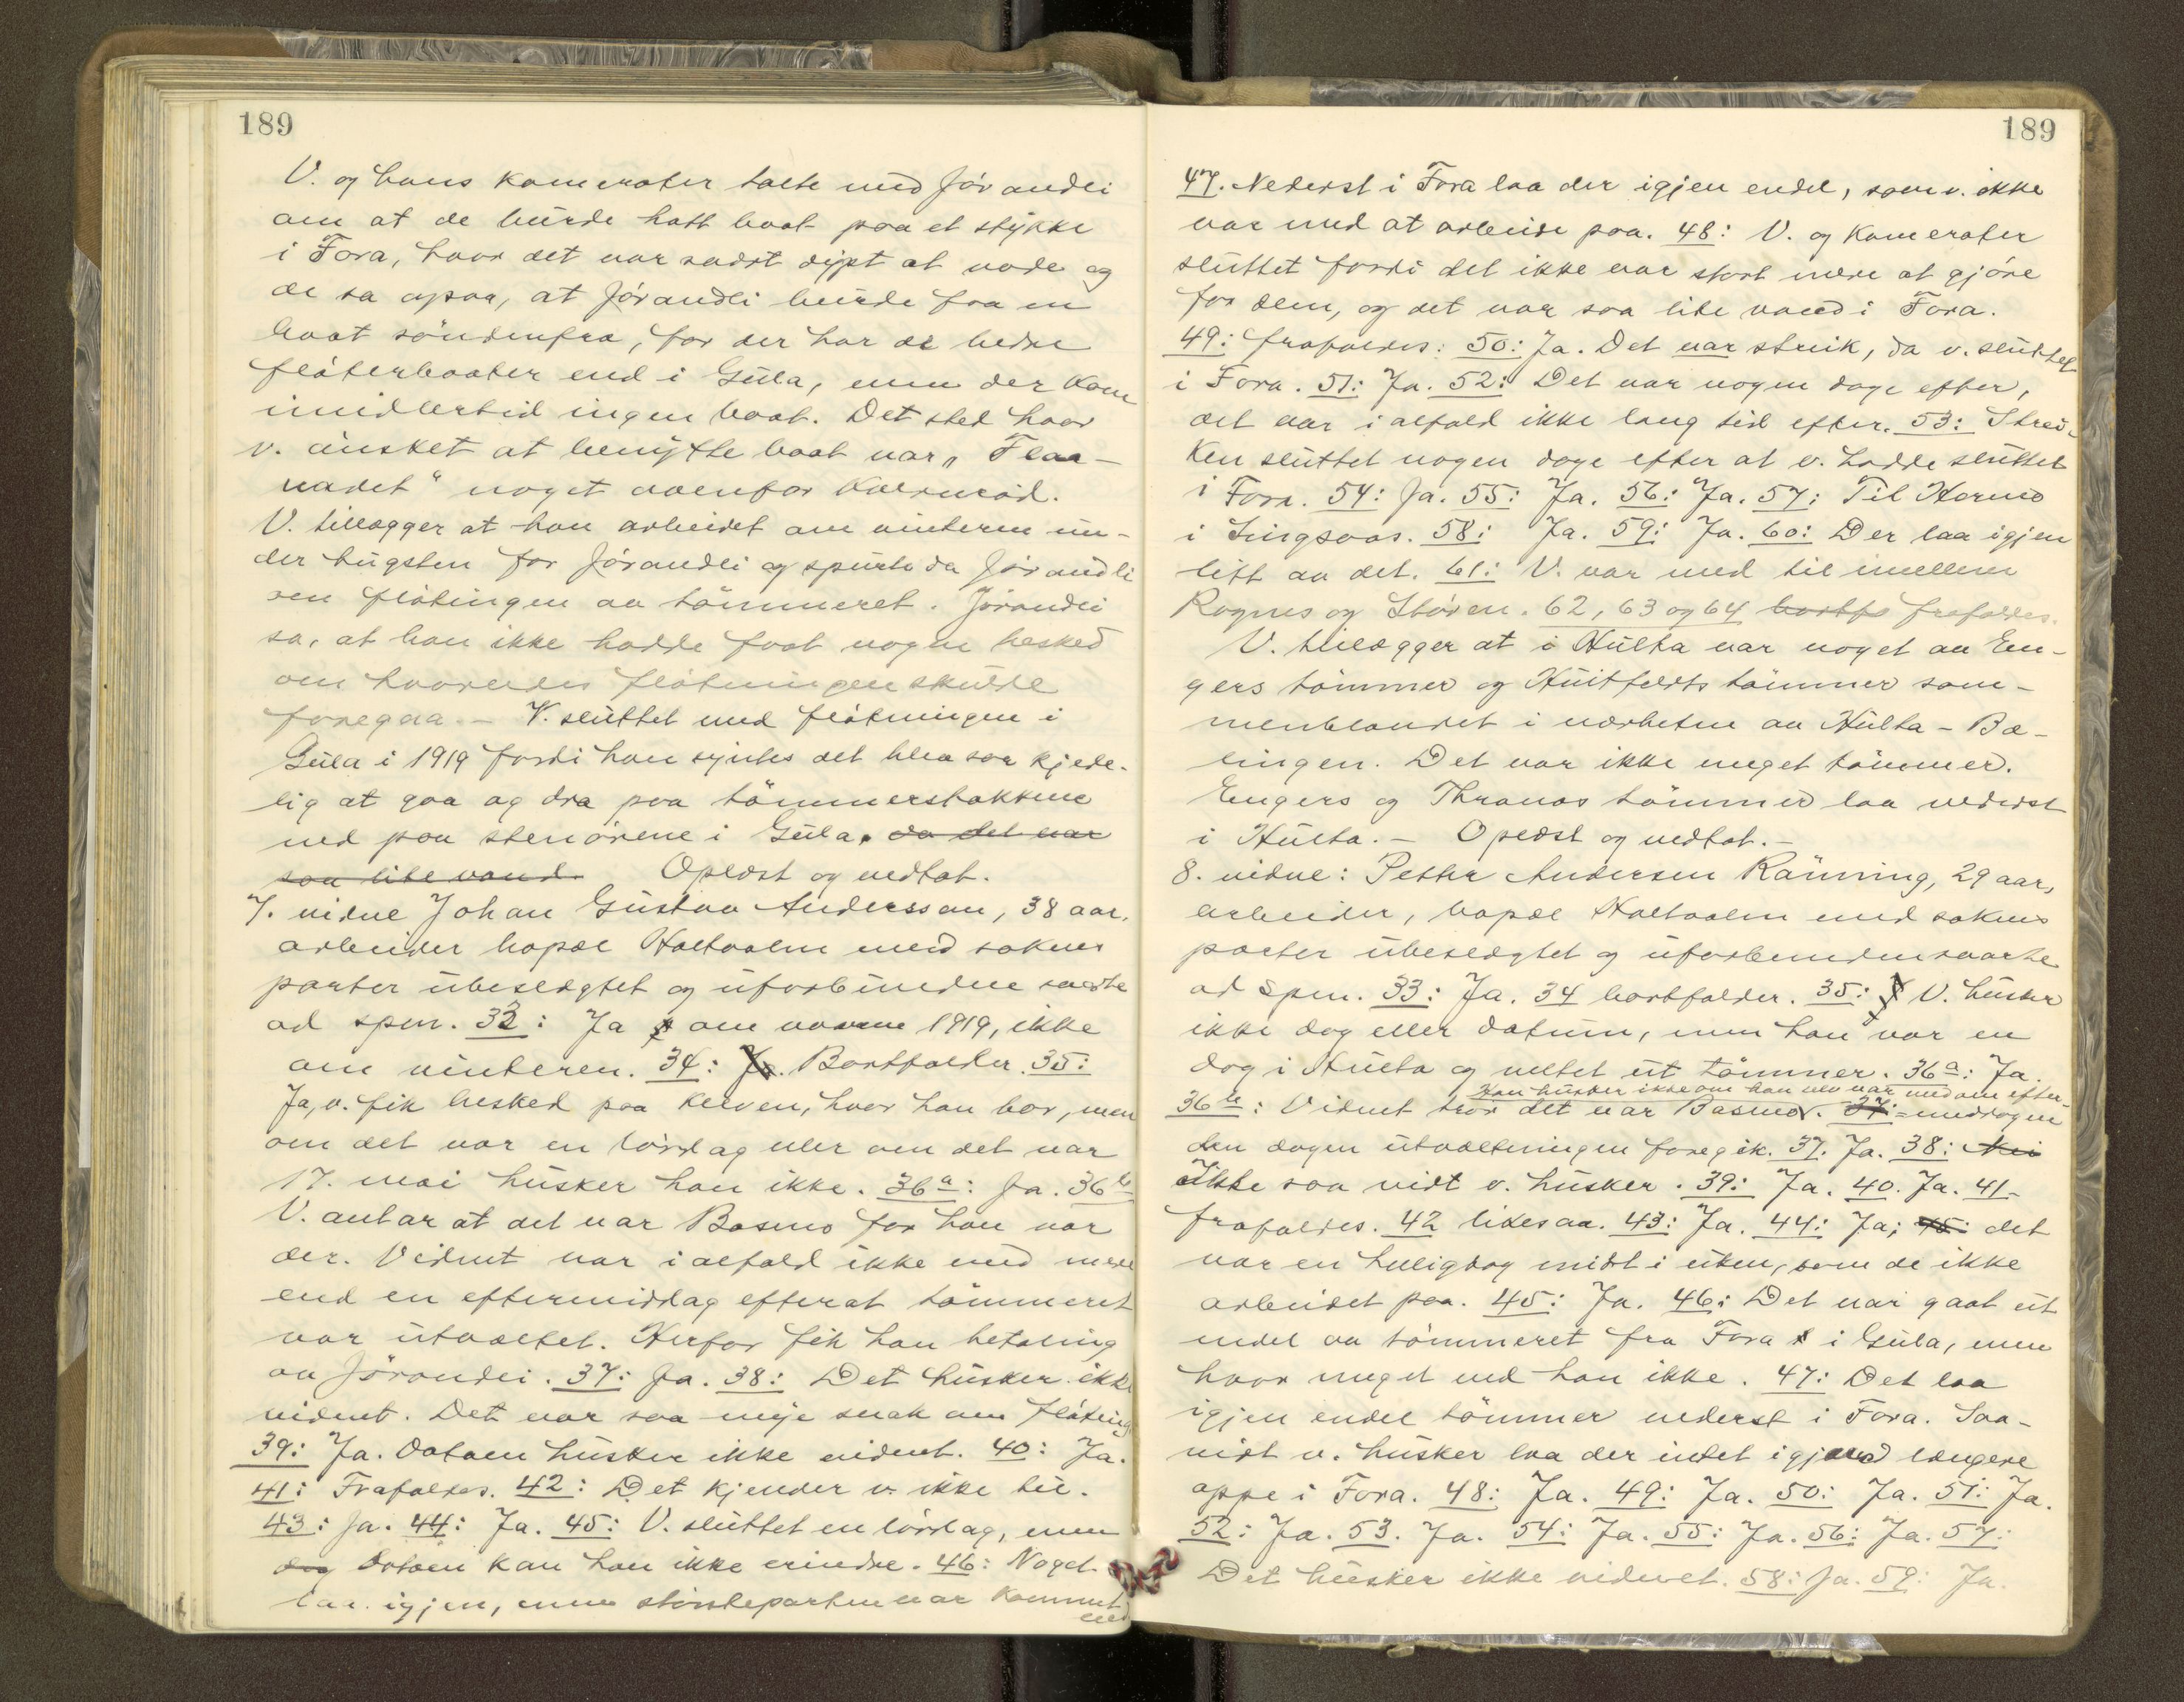 189
V. og hans kamerater talte med Jörandli
om at de burde hatt baat paa et stykke
i Fora, hvor det var sadst dypt at vade og
de sa ogsaa, at Jörandli burde faa en
baat söndenfra, for der har de bedre
flöterbaater end i Gula, men der kom
imidlertid ingen baat. Det sted hvor
v. önsket at benytte baat var „Flaa-
vadet“ noget ovenfor Kvernrød.
V. tillægger at han arbeidet om vinteren un-
der hugsten for Jörandli og spurte da Jörandli
om flötingen av tömmeret. Jörandli
sa, at han ikke hadde faat nogen besked
om hvorledes flötningen skulde
foregaa. – V. sluttet med flötningen i
Gula i 1919 fordi han syntes det blev saa kjede-
lig at gaa og dra paa tömmerstokkene
ned paa stenörene i Gula, da det var
saa lite vand. Oplæst og vedtat.
7. vidne Johan Gustav Andersson, 38 aar,
arbeider bopæl Holtaalen med sakens
parter ubeslægtet og uforbunden svarte
ad spm. 33: Ja om vaaren 1919, ikke
om vinteren. 34: Ja. Bortfalder. 35:
Ja, v. fik besked paa Kleven, hvor han bor, men
om det var en lördag eller om det var
17. mai husker han ikke. 36a: Ja. 36b
V. antar at det var Basmo for han var
der. Vidnet var ialfald ikke med mere
end en eftermiddag efterat tömmeret
var utvæltet. Herfor fik han betaling
av Jörandli. 37: Ja. 38: Det husker ikke
vidnet. Det var saa mye snak om flöting
39: Ja. Datoen husker ikke vidnet. 40: Ja.
41: Frafaldes. 42: Det kjender v. ikke til.
43: Ja. 44: Ja. 45: V. sluttet en lördag, men
dag datoen kan han ikke erindre. 46: Noget
laa igjen, men störsteparten var kommet
ned
189
47. Nederst i Fora laa der igjen endel, som v. ikke
var med at arbeide paa. 48: V. og kamerater
sluttet fordi det ikke var stort mere at gjöre
for dem, og det var saa lite vand i Fora.
49: frafaldes: 50: Ja. Det var streik, da v. sluttet
i Fora. 51: Ja. 52: Det var nogen dage efter,
det var ialfald ikke lang tid efter. 53: Strei-
ken sluttet nogen dage efter at v. hadde sluttet
i Fora. 54: Ja. 55: Ja. 56: Ja. 57: Til Hormo
i Singsaas. 58: Ja. 59: Ja. 60: Der laa igjen
litt av det. 61: V. var med til imellem
Rognes og Stören. 62, 63 og 64 bortfa frafaldes.
V. tillægger at i Hulta var noget av En-
gers tömmer og Huitfeldts tömmer sam-
menblandet i nærheten av Hulta-Bæ-
lingen. Det var ikke meget tömmer.
Engers og Thranas tömmer laa nederst
i Hulta. – Oplæst og vedtat. –
8. vidne: Petter Andersen Rönning, 29 aar,
arbeider, bopæl Holtaalen med sakens
parter ubeslægtet og uforbunden svarte
ad spm. 33: Ja. 34 bortfalder. 35: J V. husker
ikke dag eller datum, men han var en
dag i Hulta og veltet ut tömmer. 36a: Ja.
Han husker ikke om han selv var med om efter-
36b: Vidnet tror det var Basmo. 37: middagen
den dagen utvæltningen foregik. 37. Ja. 38: Nei
Ikke saa vidt v. husker. 39: Ja. 40. Ja. 41-
frafaldes. 42 likesaa. 43: Ja. 44: Ja; 45: det
var en helligdag midt i uken, som de ikke
arbeidet paa. 45: Ja. 46: Det var gaat ut
endel av tömmeret fra Fora i Gula, men
hvor meget ved han ikke. 47: Det laa
igjen endel tömmer nederst i Fora. Saa-
vidt v. husker laa der intet igjen længere
oppe i Fora. 48: Ja. 49: Ja. 50: Ja. 51: Ja.
52: Ja. 53. Ja. 54: Ja. 55: Ja. 56: Ja. 57:
Det husker ikke vidnet. 58: Ja. 59: Ja.